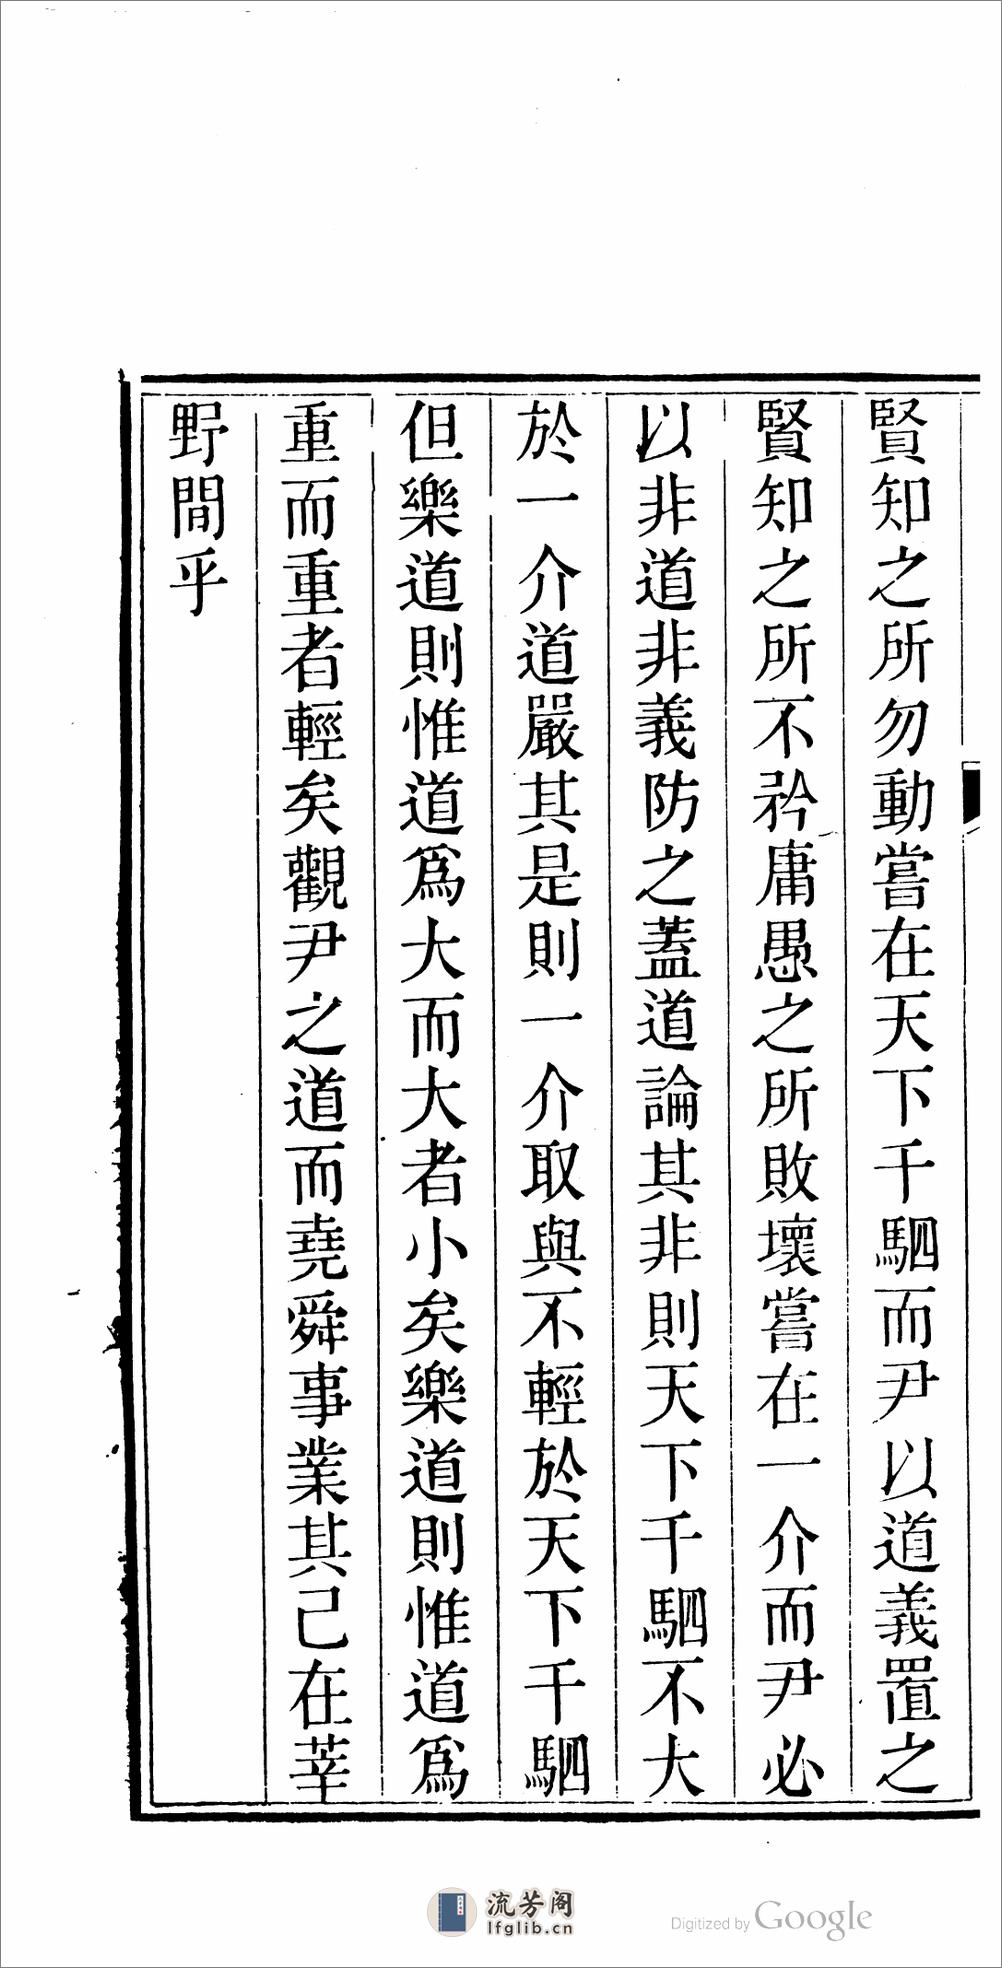 賢知之所勿動嘗在天下千駟而尹以道義置之
賢知之所不矜庸愚之所敗壞嘗在一介而尹必
以非道非義防之蓋道論其非則天下千駟不大
於一介道嚴其是則一介取與不輕於天下千駟
但樂道則惟道爲大而大者小矣樂道則惟道爲
重而重者輕矣觀尹之道而堯舜事業其己在莘
野間乎
流芳阁
lfglib.cn
Digitized by Google